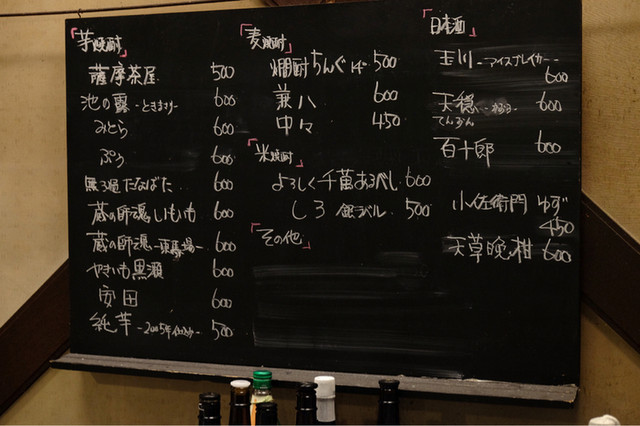 「芋焼酎」
薩摩茶屋 500
池の露 600
みとら 600
ぷう 600
無ろ過 たなばた 600
蔵の師魂 いもいも 600
蔵の師魂 600
やきいも黒瀬 600
安田 600
純芋 500
「麦焼酎」
燗酎ちんぐ 500
兼八 600
中々 450
「米焼酎」
よろしく千萬あるべし 600
しろ 銀ラベル 500
「その他」
「日本酒」
玉川 -アイスブレイカー-
600
天穏 600
てんおん
百十郎 600
小左衛門 ゆず
450
天草晩柑 600